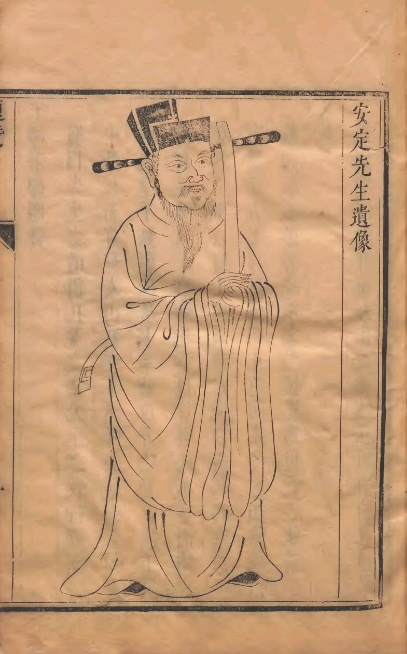 安定先生遺像